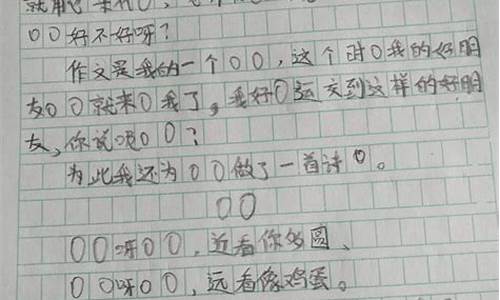 就用
〇〇好不好呀？
作文是我的一个〇〇，这个时〇我的好朋
友〇〇就来〇我了，我好〇运交到这样的好朋
友，你说呢〇〇？
为此我还为〇〇做了一首诗〇。
〇〇
〇〇呀〇〇，近看你多圆、
〇〇呀〇〇，远看像鸡蛋。